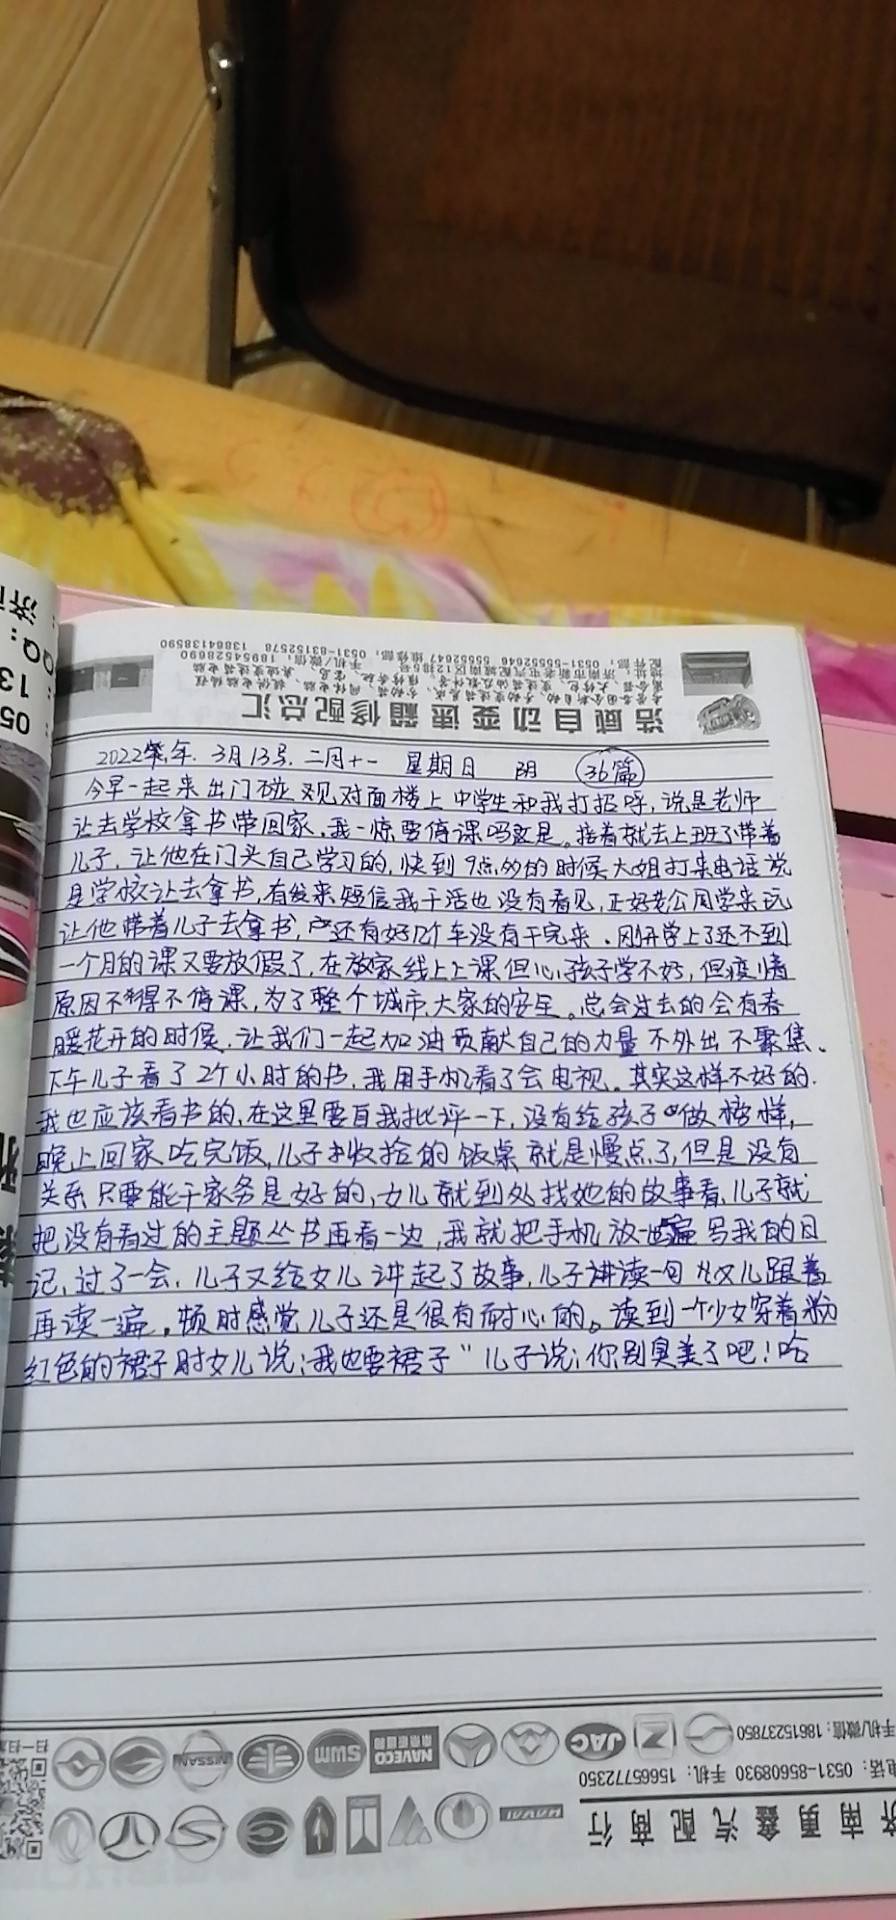 浩威自动变速箱修配总汇
配件部：0531-55552646 维修部：55552647
手机/微信：18954528690
0531-83152578 13864138590
2022年.3月13号.二月十一 星期日 阴 36篇
今早一起来出门碰观对面楼上中学生和我打招呼,说是老师
让去学校拿书带回家.我一惊要停课吗这是。接着就去上班了带着
儿子,让他在门头自己学习的,快到9点多的时候大姐打来电话说
是学校让去拿书,有发来短信我干活也没有看见,正好老公同学来玩
让他带着儿子去拿书,还有好几个车没有干完来.刚开学上了还不到
一个月的课又要放假了,在放家线上上课但心孩子学不好,但疫情
原因不得不停课,为了整个城市,大家的安全。总会过去的会有春
暖花开的时候.让我们一起加油贡献自己的力量不外出不聚集、
下午儿子看了2个小时的书,我用手机看了会电视。其实这样不好的.
我也应该看书的,在这里要自我批评一下,没有给孩子做榜样,
晚上回家吃完饭,儿子收拾的饭桌就是慢点了,但是没有
关系只要能干家务是好的,女儿就到处找她的故事看,儿子就
把没有看过的主题丛书再看一边,我就把手机放一边写我的日
记,过了一会,儿子又给女儿讲起了故事,儿子讲读一句女儿跟着
再读一遍,顿时感觉儿子还是很有耐心的。读到一个少女穿着粉
红色的裙子时女儿说:我也要裙子"儿子说:你别臭美了吧!哈
手机/微信：18615237850
电话：0531-85608930 手机：15665772350
济南勇鑫汽配商行
NISSAN SWM NAVECO JAC
HAVAL
扫一扫